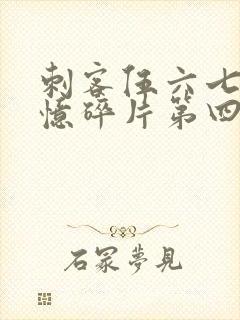 刺客伍六七
憶碎片第四
石冡夢見